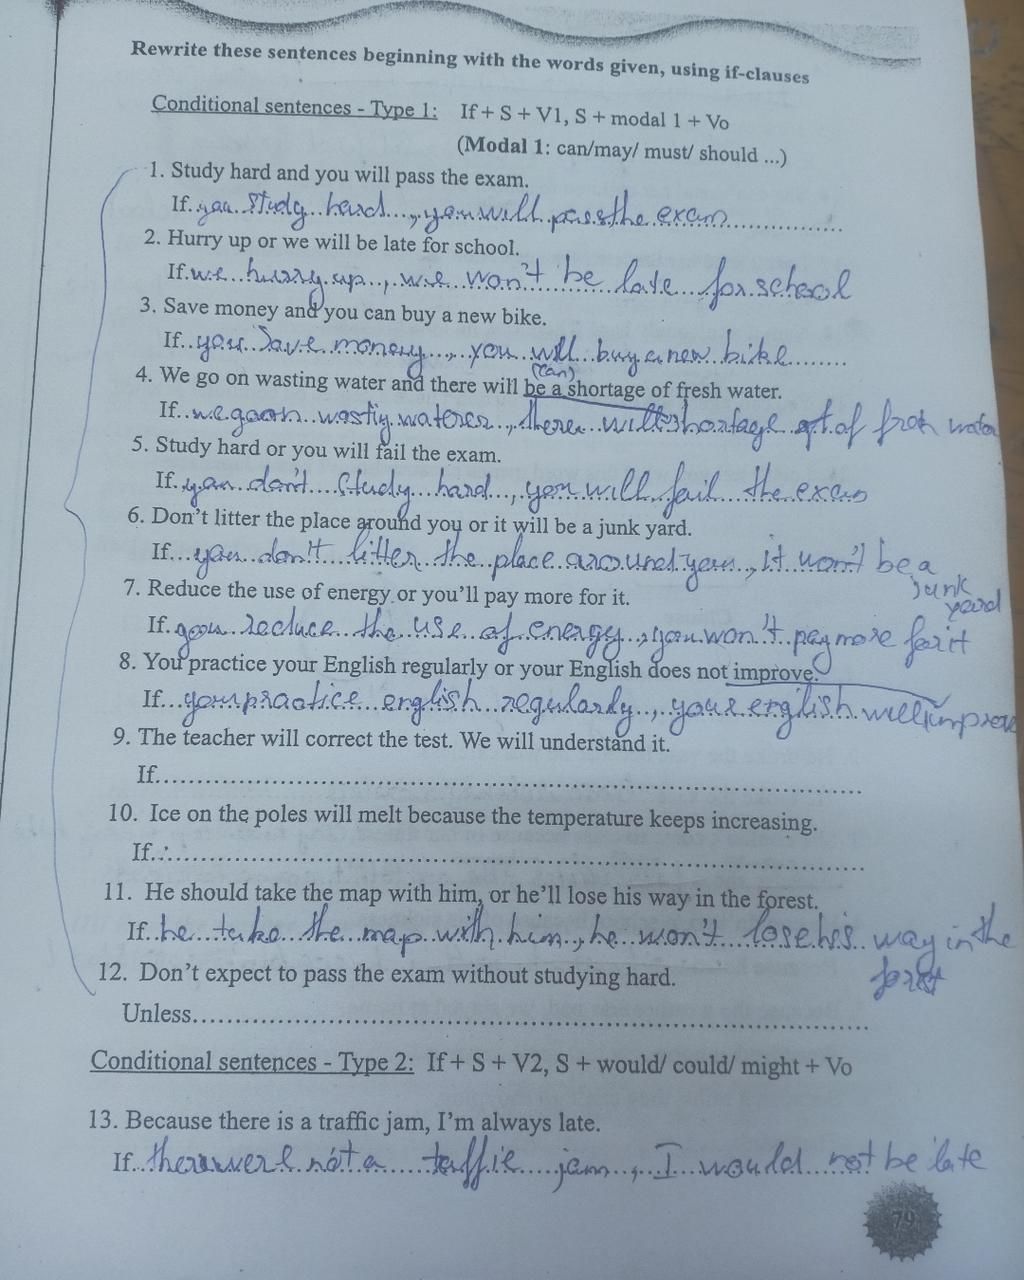 Rewrite these sentences beginning with the words given, using if-clauses
Conditional sentences - Type 1: If + S + V1, S + modal 1 + Vo
(Modal 1: can/may/ must/ should ...)
1. Study hard and you will pass the exam.
If you study hard, you will pass the exam
2. Hurry up or we will be late for school.
If we hurry up, we won't be late for school
3. Save money and you can buy a new bike.
If you save money, you will buy a new bike
(can)
4. We go on wasting water and there will be a shortage of fresh water.
If we go on, there will shortage of water
5. Study hard or you will fail the exam.
If you don't study hard, you will fail the exam
6. Don't litter the place around you or it will be a junk yard.
If you don't litter the place around you, it won't be a
junk
yard
7. Reduce the use of energy or you'll pay more for it.
If you reduce the use of energy, you won't pay more for it
8. You practice your English regularly or your English does not improve.
If your practice english regularly, your english will improve
9. The teacher will correct the test. We will understand it.
If
10. Ice on the poles will melt because the temperature keeps increasing.
If
11. He should take the map with him, or he'll lose his way in the forest.
If he take the map with him, he won't lose his way in the
12. Don't expect to pass the exam without studying hard.
Unless
Conditional sentences - Type 2: If + S + V2, S + would/ could/ might + Vo
13. Because there is a traffic jam, I'm always late.
If there were not a jam, I would not be late
79